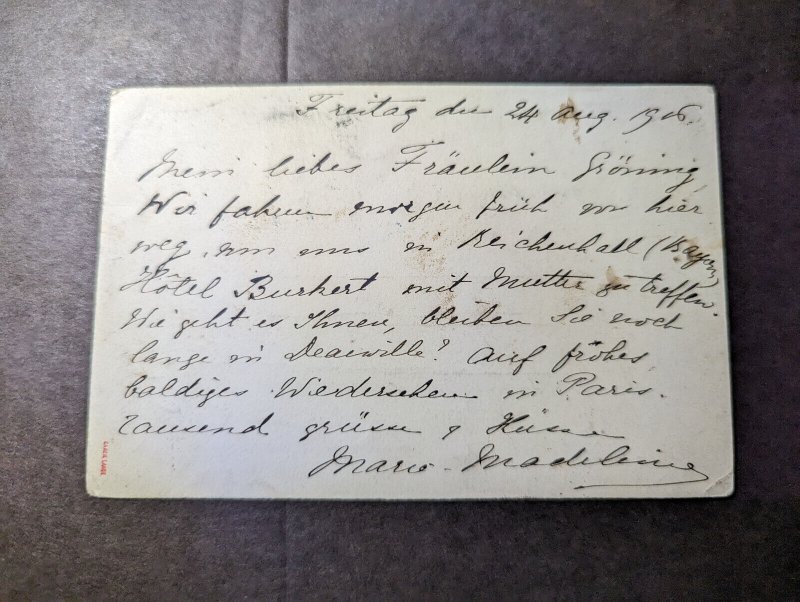 Freitag den 24 Aug. 1906.
Mein liebes Fräulein Gröning,
Wir fahren morgen früh von hier
weg, um uns in Reichenhall (Bayern)
Hôtel Burkert mit Mutter zu treffen.
Wie geht es Ihnen, bleiben Sie noch
lange in Deauville? Auf frohes,
baldiges Wiedersehen in Paris.
Tausend grüsse & Küsse
Marie-Madeleine